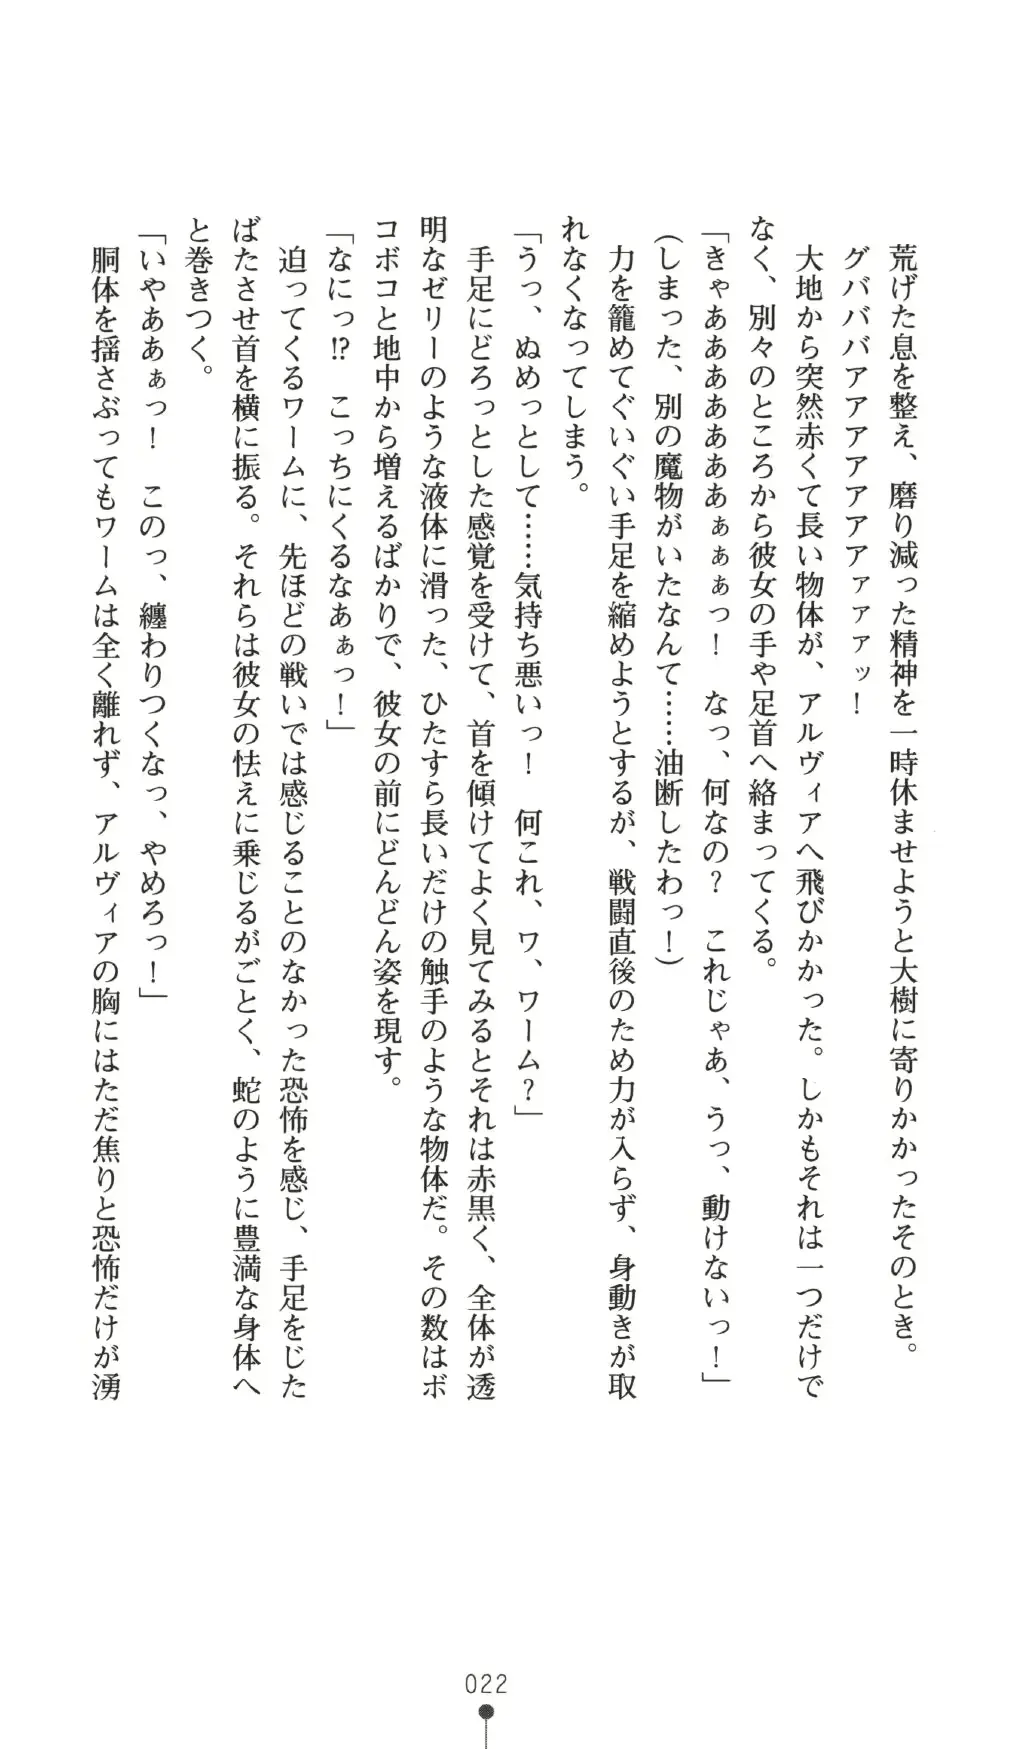 荒げた息を整え、磨り減った精神を一時休ませようと大樹に寄りかかったそのとき。
グババババアアアアアアァァァッ！
大地から突然赤くて長い物体が、アルヴィアへ飛びかかった。しかもそれは一つだけで
なく、別々のところから彼女の手や足首へ絡まってくる。
「きゃああああああぁぁぁっ！　なっ、何なの？　これじゃあ、うっ、動けないっ！」
(しまった、別の魔物がいたなんて……油断したわっ！)
力を籠めてぐいぐい手足を縮めようとするが、戦闘直後のため力が入らず、身動きが取
れなくなってしまう。
「うっ、ぬめっとして……気持ち悪いっ！　何これ、ワ、ワーム？」
手足にどろっとした感覚を受けて、首を傾けてよく見てみるとそれは赤黒く、全体が透
明なゼリーのような液体に滑った、ひたすら長いだけの触手のような物体だ。その数はボ
コボコと地中から増えるばかりで、彼女の前にどんどん姿を現す。
「なにっ!?　こっちにくるなあぁっ！」
迫ってくるワームに、先ほどの戦いでは感じることのなかった恐怖を感じ、手足をじた
ばたさせ首を横に振る。それらは彼女の怯えに乗じるがごとく、蛇のように豊満な身体へ
と巻きつく。
「いやああぁっ！　このっ、纏わりつくなっ、やめろっ！」
胴体を揺さぶってもワームは全く離れず、アルヴィアの胸にはただ焦りと恐怖だけが湧
022